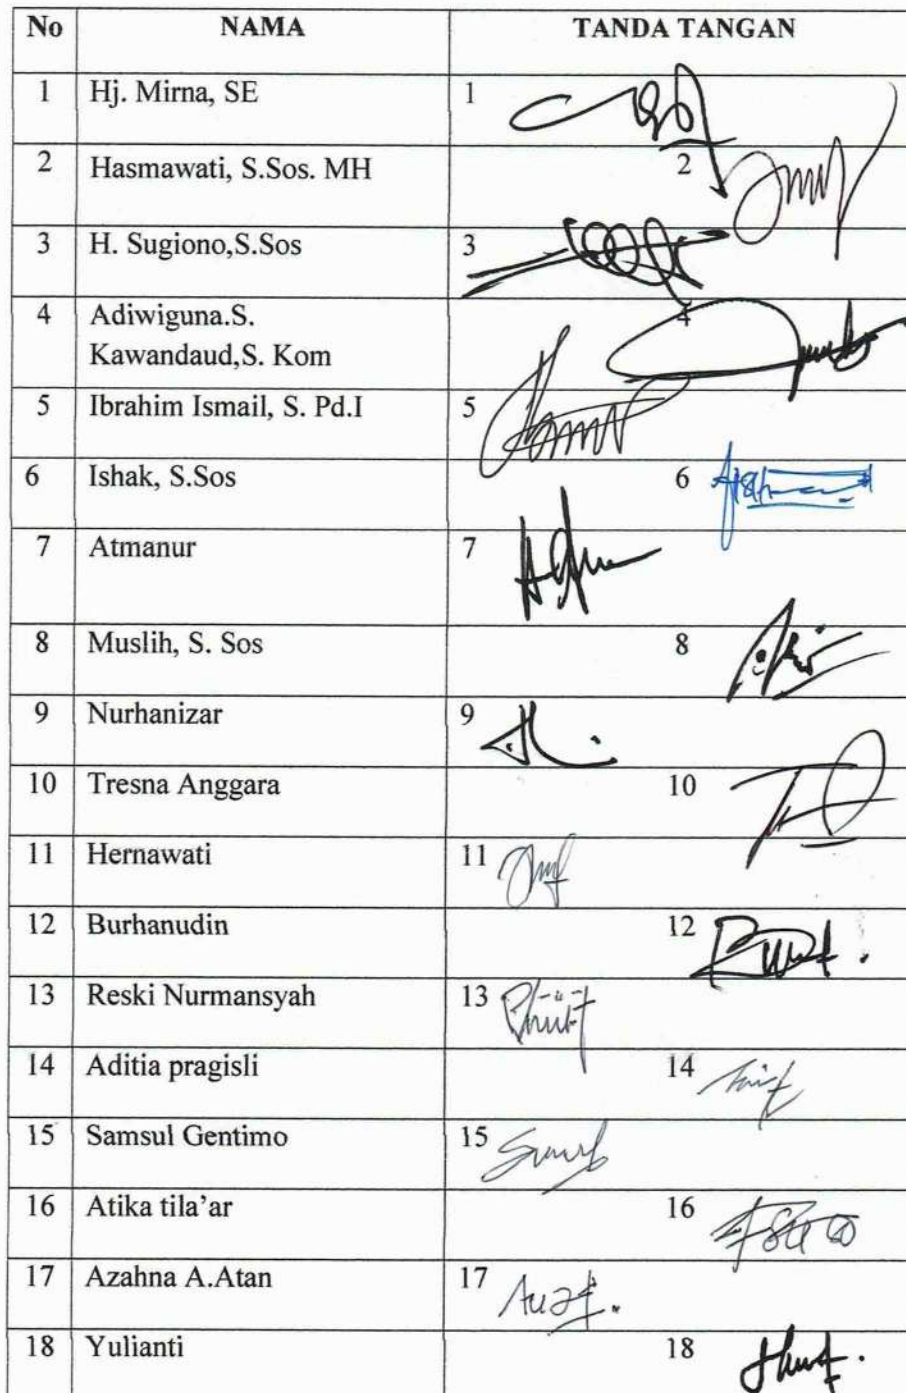 No NAMA TANDA TANGAN
1 Hj. Mirna, SE 1
2 Hasmawati, S.Sos. MH 2
3 H. Sugiono,S.Sos 3
4 Adiwiguna.S. 4
Kawandaud,S. Kom
5 Ibrahim Ismail, S. Pd.I 5
6 Ishak, S.Sos 6
7 Atmanur 7
8 Muslih, S. Sos 8
9 Nurhanizar 9
10 Tresna Anggara 10
11 Hernawati 11
12 Burhanudin 12
13 Reski Nurmansyah 13
14 Aditia pragisli 14
15 Samsul Gentimo 15
16 Atika tila’ar 16
17 Azahna A.Atan 17
18 Yulianti 18